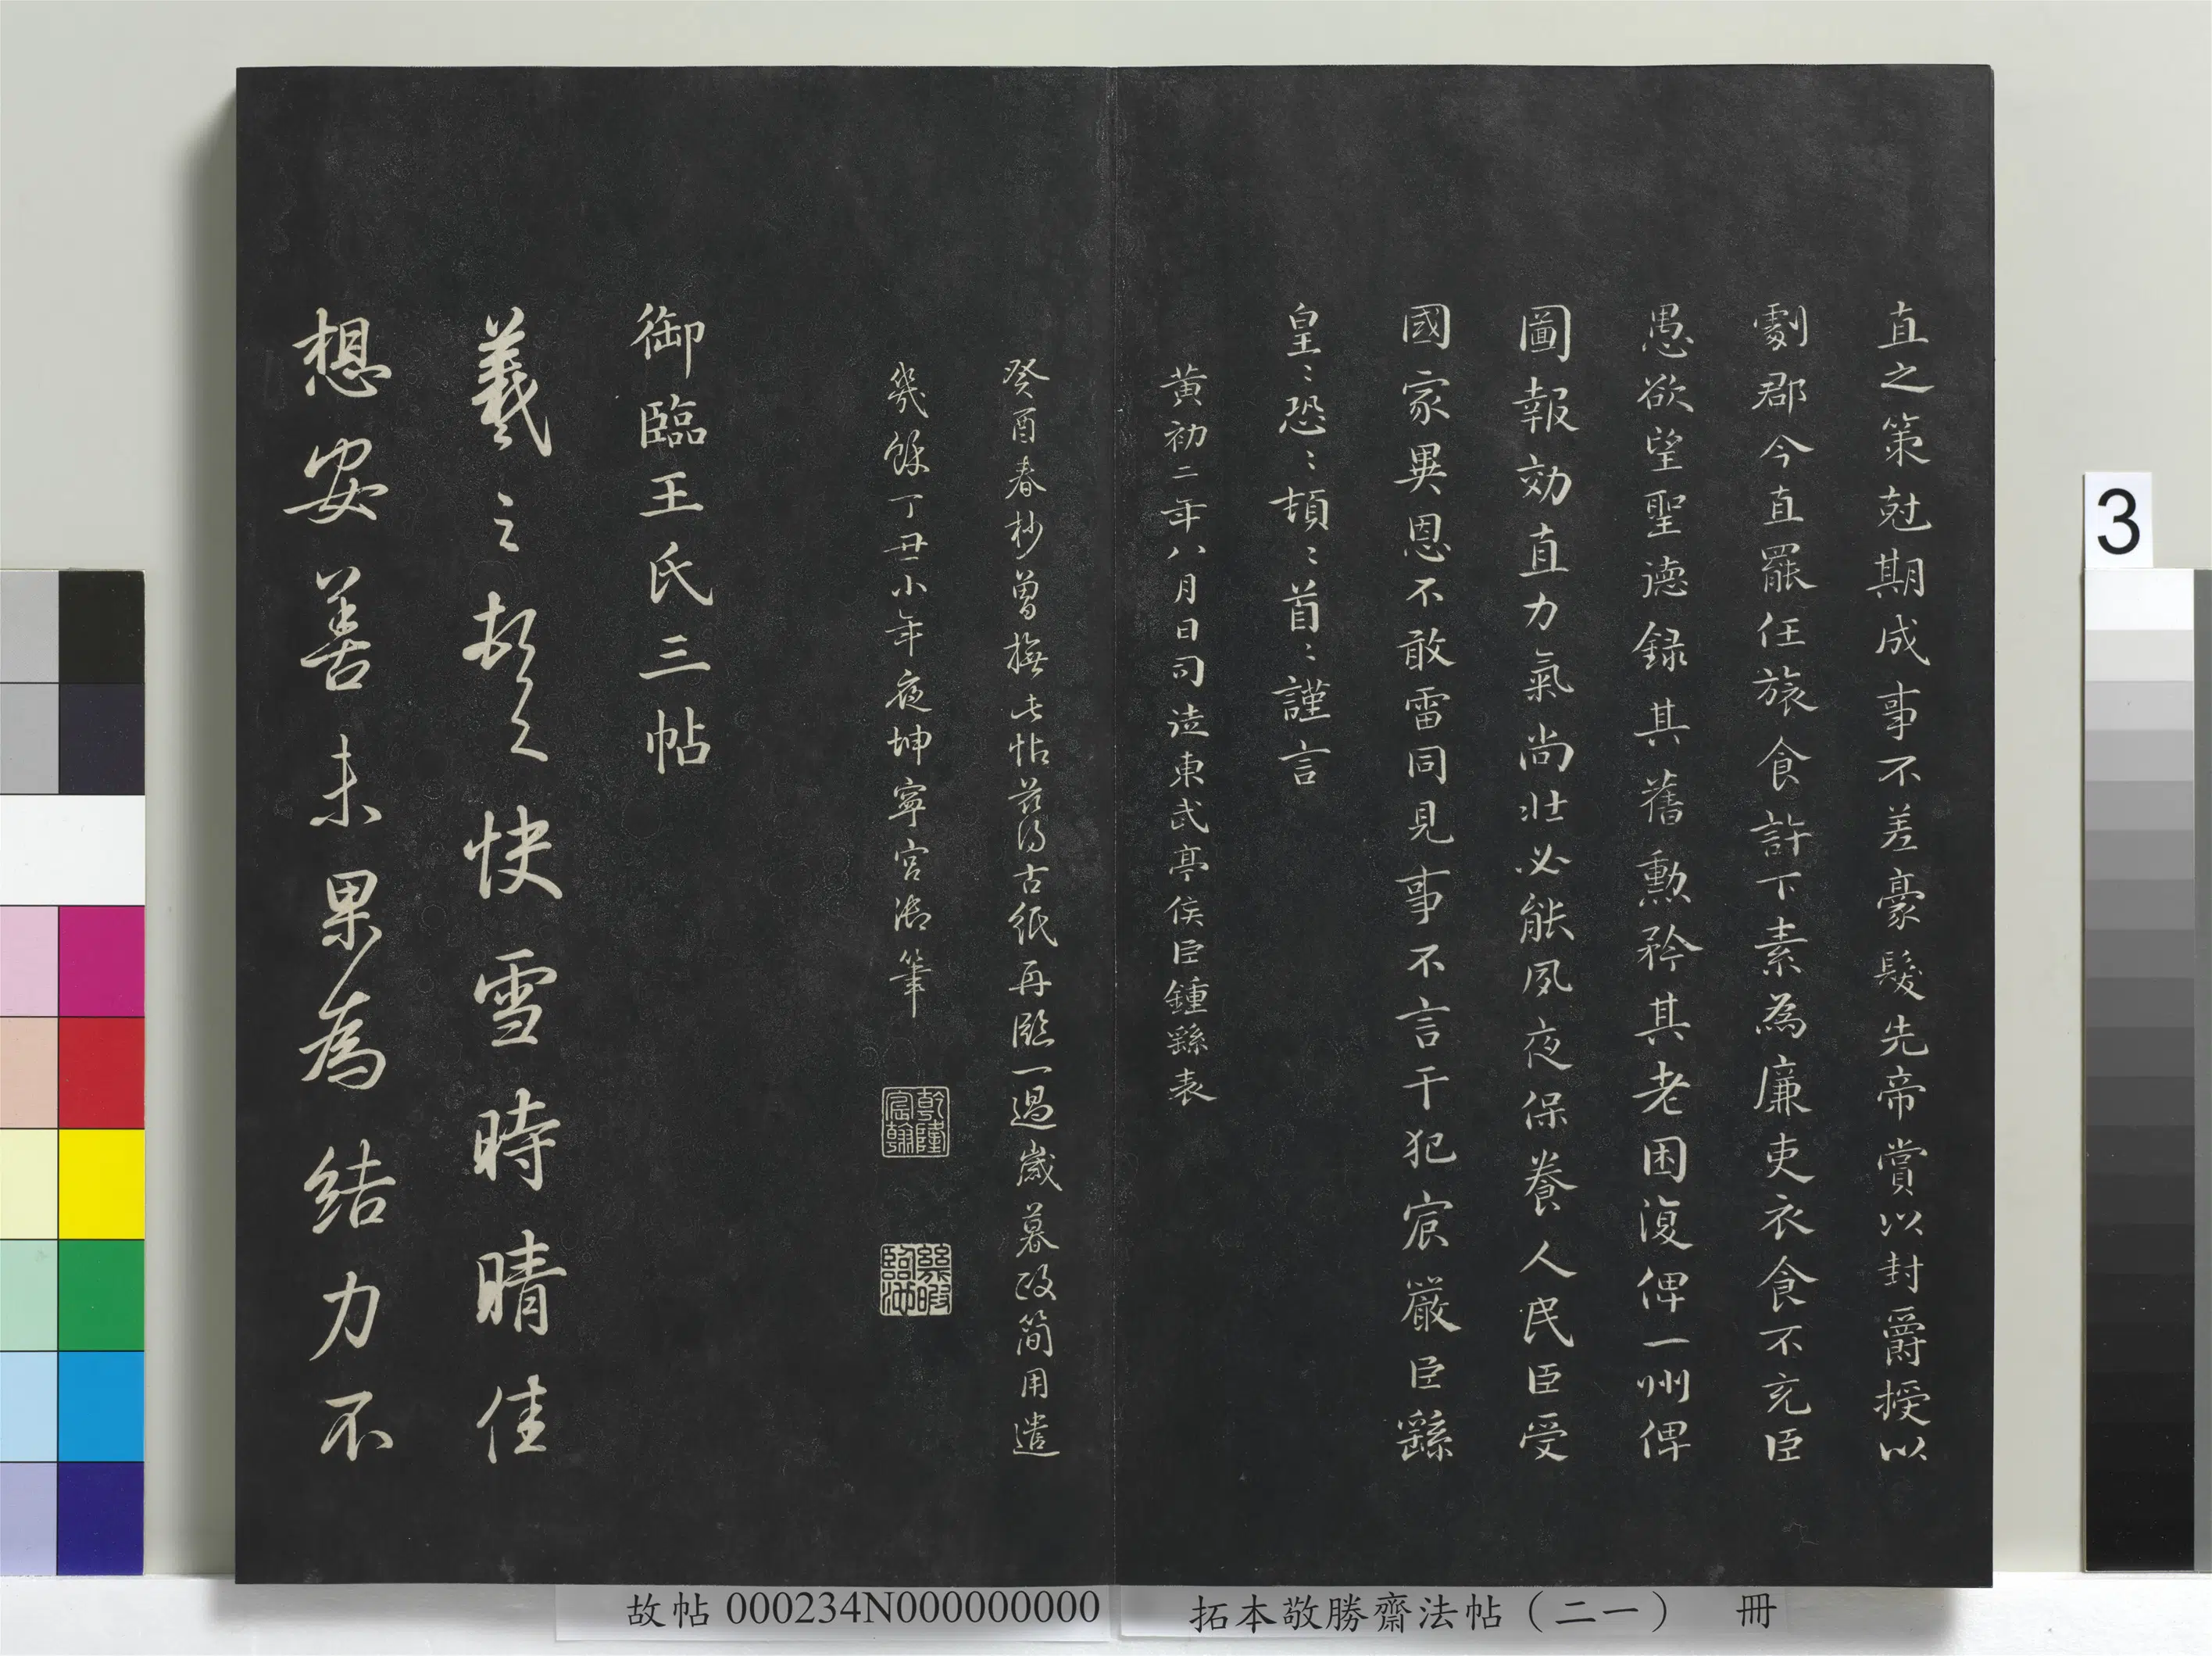 直之策尅期成事不差豪髮先帝賞以封爵授以
劇郡今直罷任旅食許下素為廉吏衣食不充臣
愚欲望聖德録其舊勲矜其老困復俾一州俾
圖報効直力氣尚壯必能夙夜保養人民臣受
國家異恩不敢雷同見事不言干犯宸嚴臣繇
皇〻恐〻頓〻首〻謹言
黃初二年八月日司徒東武亭侯臣鍾繇表
癸酉春杪曾撫此帖茲得古紙再臨一過歲暮政簡用遣
幾餘丁丑小年夜坤寧宮御筆
乾隆宸翰
幾暇臨池
御臨王氏三帖
羲之頓首快雪時晴佳
想安善未果為結力不
3
故帖 000234N000000000
拓本敬勝齋法帖（二一） 冊